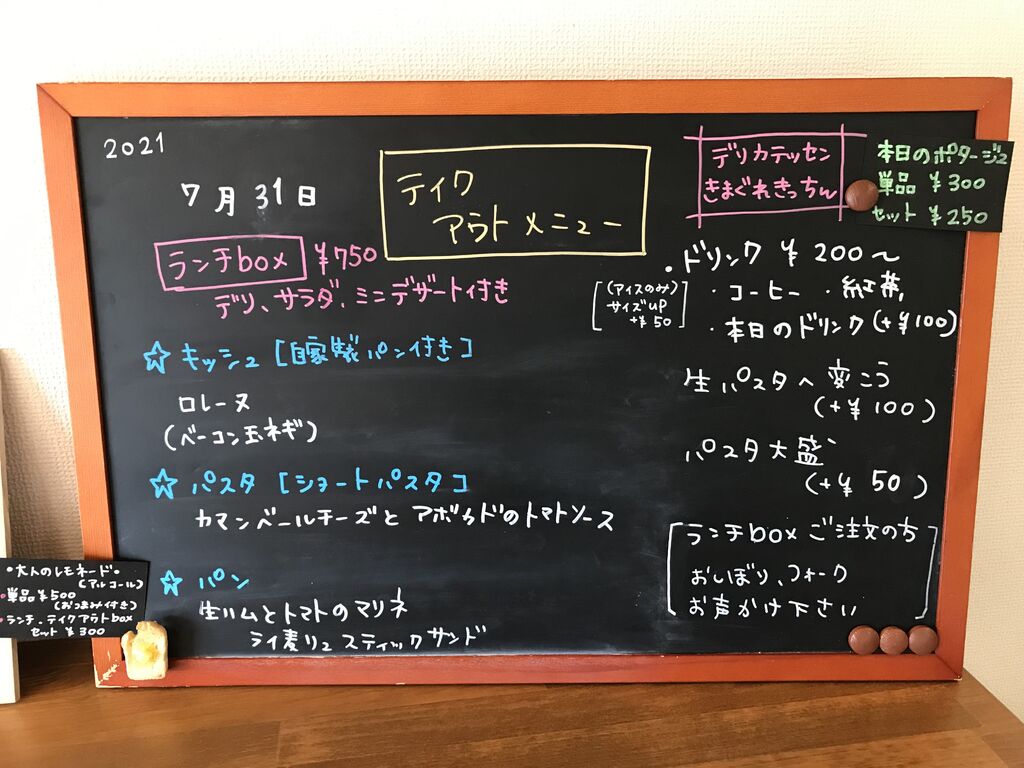 2021
7月31日
テイク
アウトメニュー
デリカテッセン
きまぐれきっちん
本日のポタージュ
単品 ¥300
セット ¥250
ランチbox ¥750
デリ、サラダ、ミニデザート付き
☆ キッシュ [自家製パン付き]
ロレーヌ
(ベーコン玉ネギ)
☆ パスタ [ショートパスタ]
カマンベールチーズと アボカドのトマトソース
☆ パン
生ハムとトマトのマリネ
ライ麦リュスティックサンド
・ドリンク ¥200〜
[(アイスのみ)
サイズup
+¥50]
・コーヒー ・紅茶
・本日のドリンク(+¥100)
生パスタへ変こう
(+¥100)
パスタ大盛
(+¥50)
[ランチbox ご注文の方
おしぼり、フォーク
お声かけ下さい]
・大人のレモネード・
(アルコール)
・単品¥500
(おつまみ付き)
・ランチ、テイクアウトbox
セット ¥300